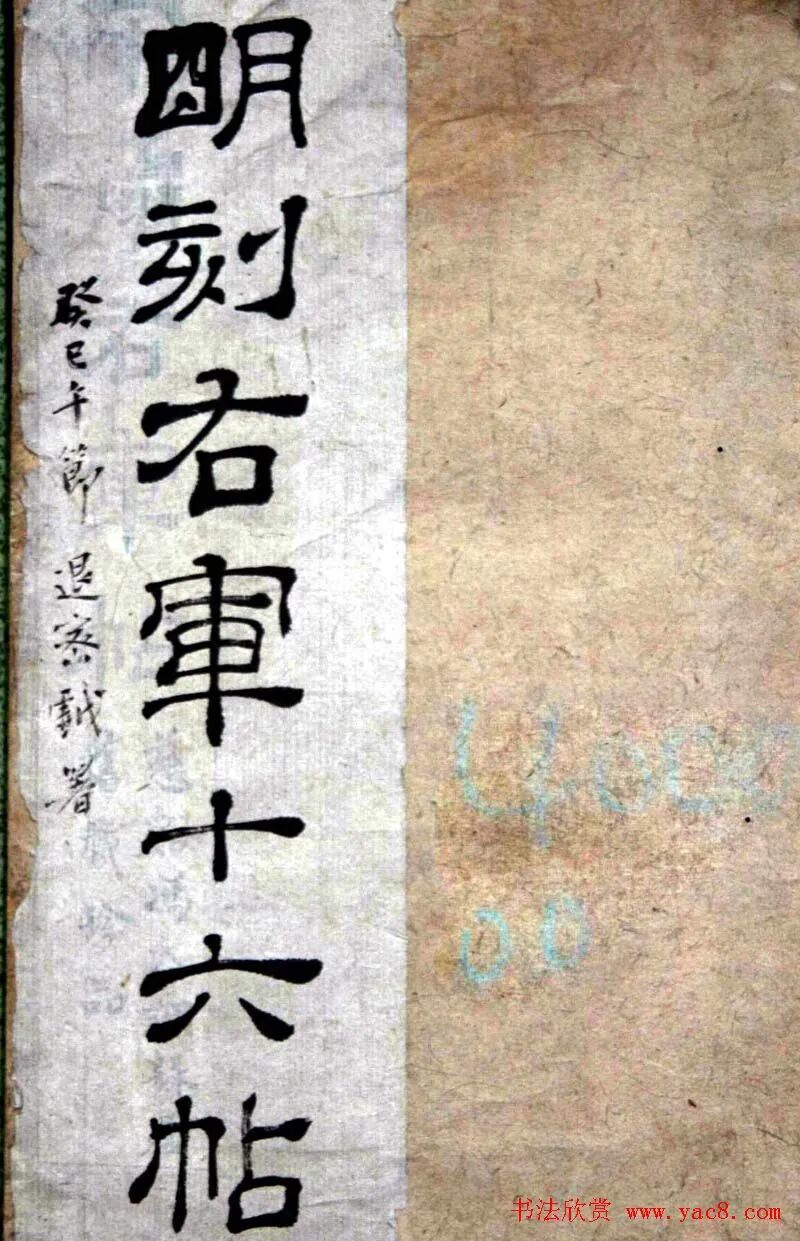 明刻右軍十六帖
癸巳午節 退密戲署
4000
00
书法欣赏 www.yac8.com